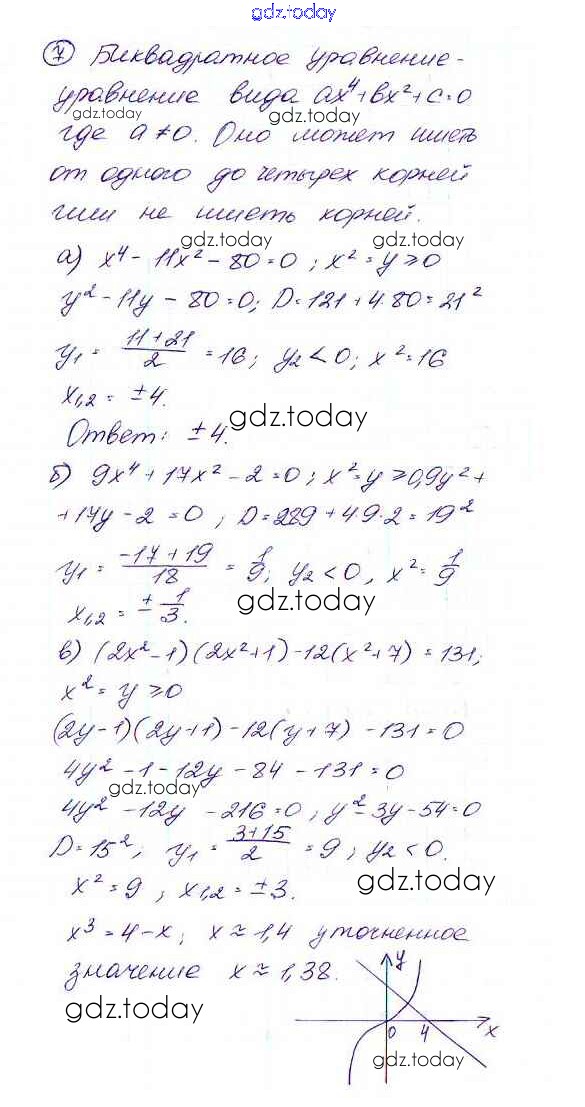 gdz.today
7 Биквадратное уравнение-
уравнение вида ax⁴+bx²+c=0
gdz.today gdz.today
где a≠0. Оно может иметь
от одного до четырех корней
или не иметь корней.
gdz.today gdz.today
а) x⁴ - 11x² - 80 = 0 ; x² = y ≥ 0
y² - 11y - 80 = 0; D = 121 + 4·80 = 21²
y₁ = (11+21)/2 = 16; y₂ < 0; x² = 16
x₁,₂ = ±4.
gdz.today
Ответ: ±4.
б) 9x⁴ + 17x² - 2 = 0 ; x² = y ≥ 0, 9y² +
+ 17y - 2 = 0 ; D = 289 + 4·9·2 = 19²
y₁ = (-17+19)/18 = 1/9; y₂ < 0, x² = 1/9
x₁,₂ = ± 1/3.
gdz.today
в) (2x²-1)(2x²+1) - 12(x²+7) = 131;
x² = y ≥ 0
(2y-1)(2y+1) - 12(y+7) - 131 = 0
4y² - 1 - 12y - 84 - 131 = 0
gdz.today
4y² - 12y - 216 = 0 ; y² - 3y - 54 = 0
D = 15² ; y₁ = (3+15)/2 = 9 ; y₂ < 0.
x² = 9 ; x₁,₂ = ±3.
gdz.today
x³ = 4 - x; x ≈ 1,4 уточненное
значение x ≈ 1,38.
gdz.today
y
0 4 x
gdz.today